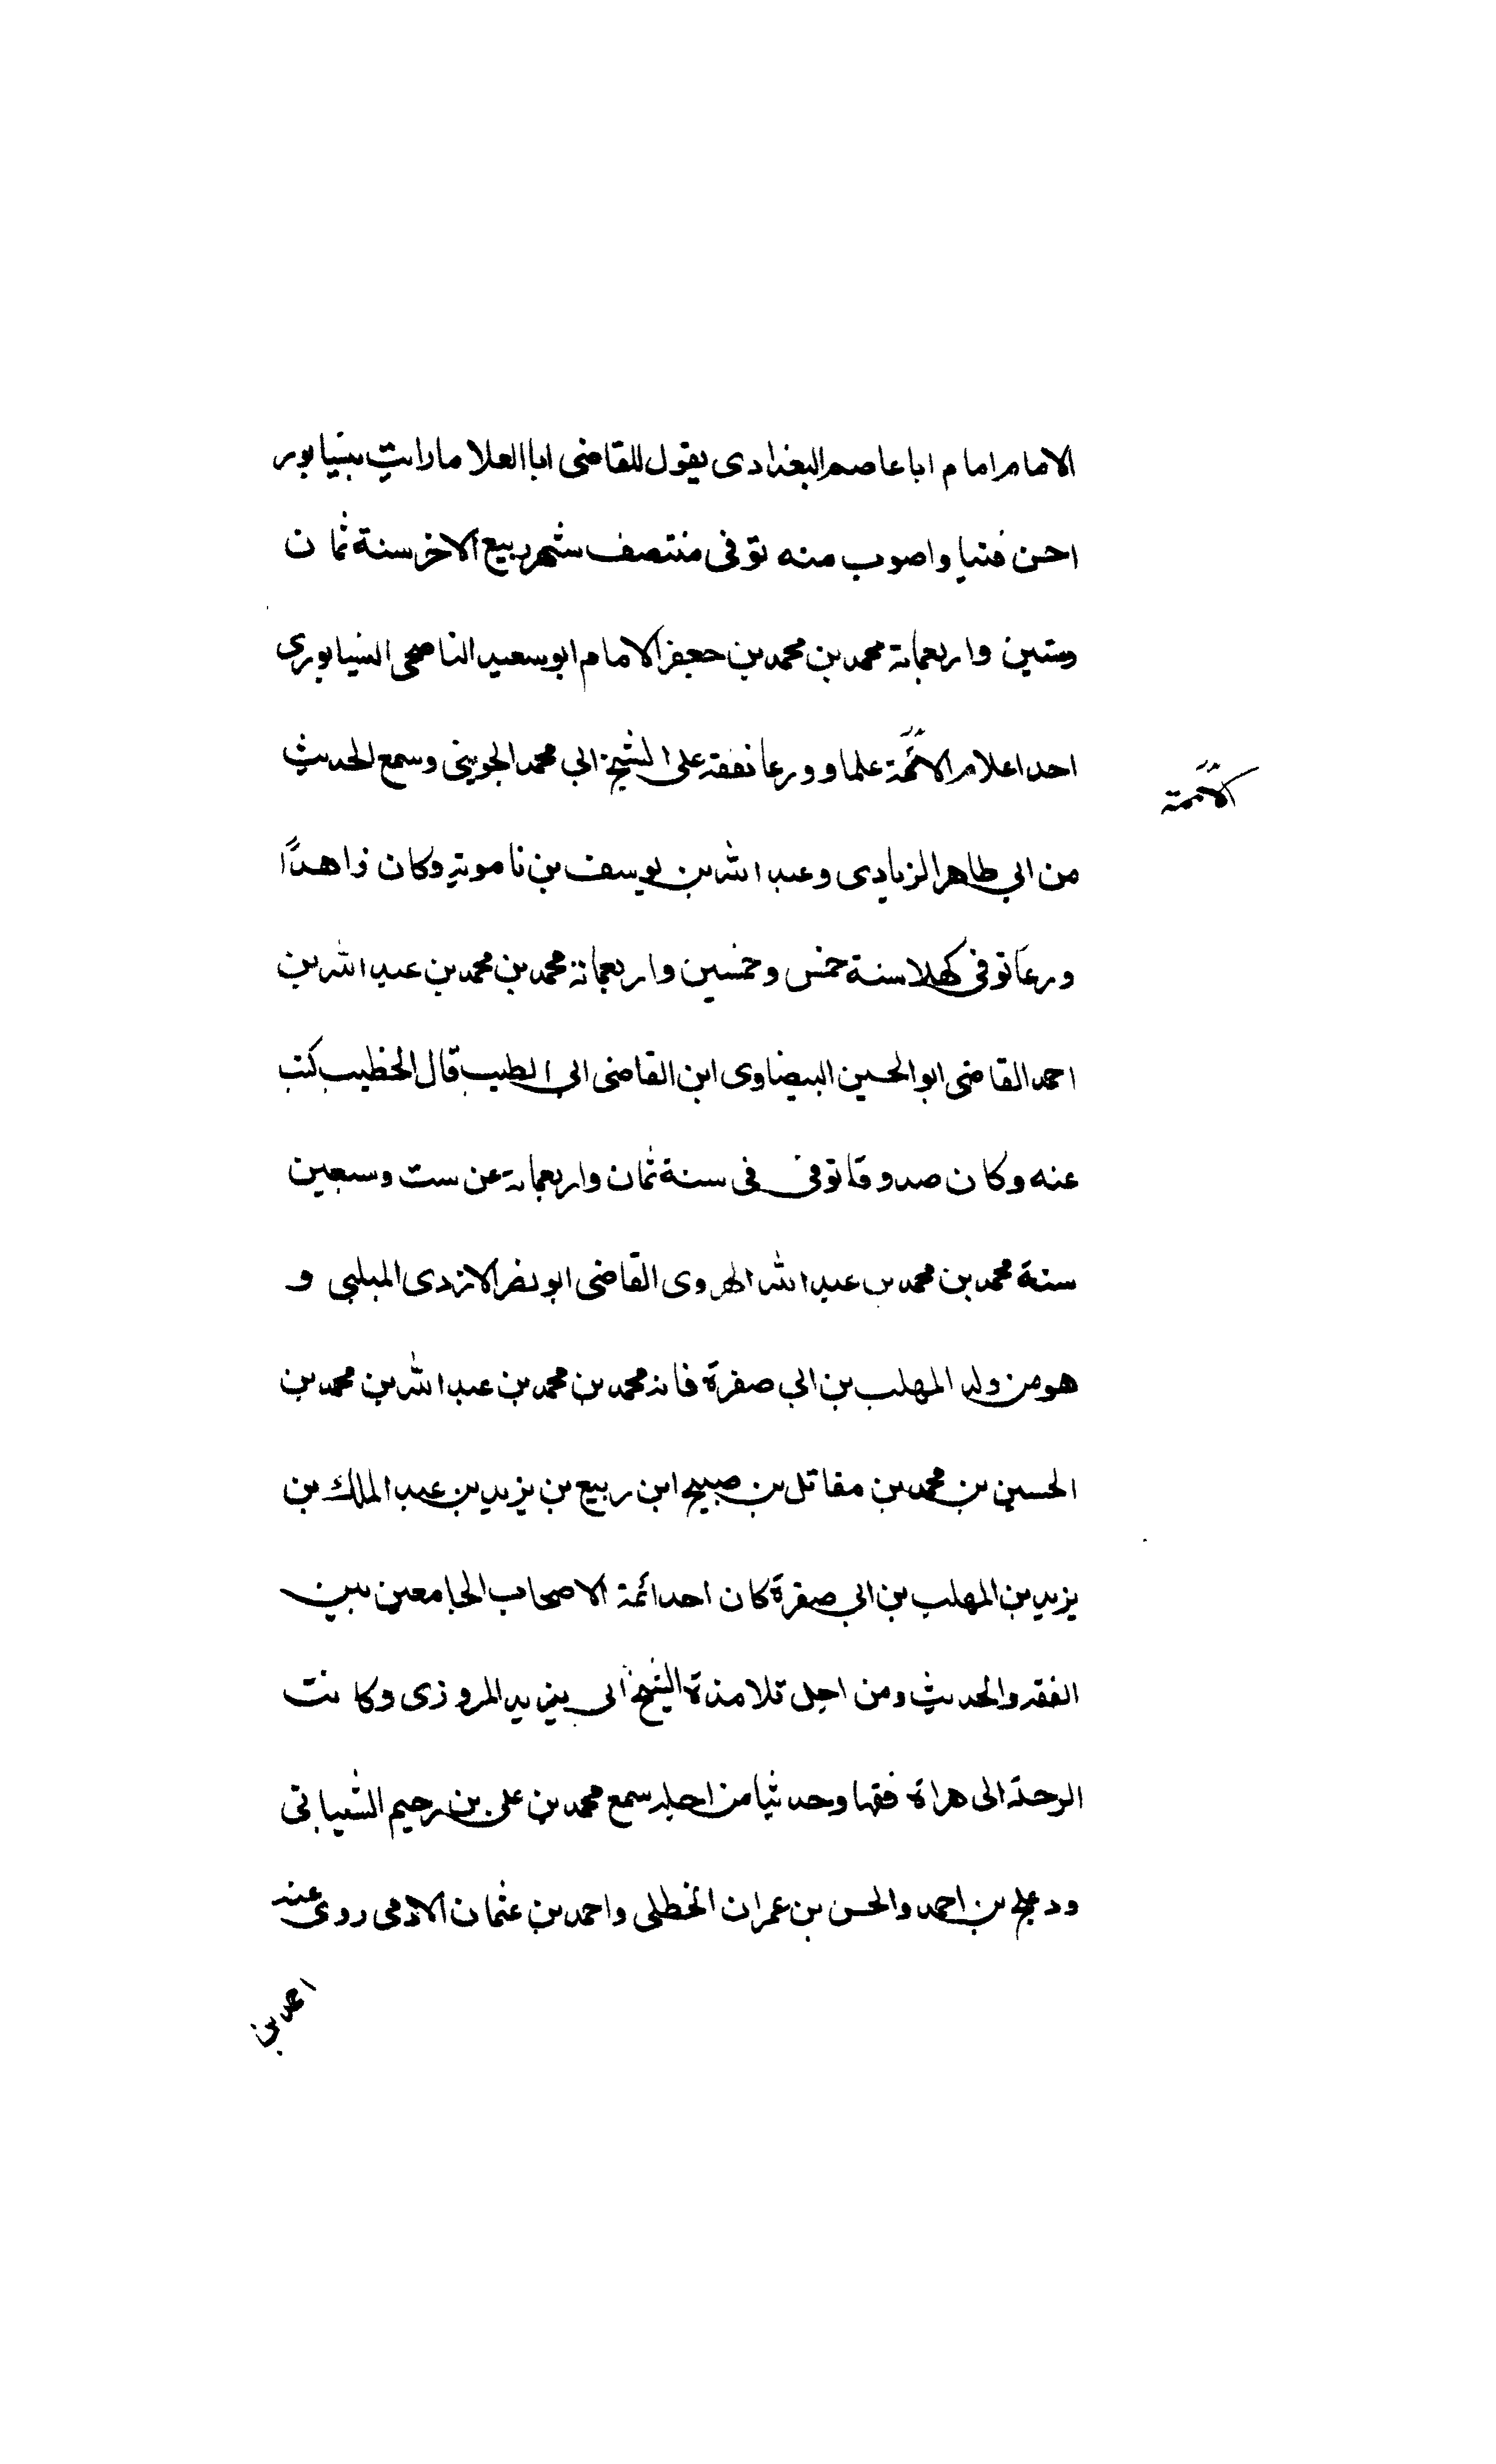 الامام امام ابا عاصم البغدادى يقول للقاضى ابا العلا ما رايت بنيسابور
احسن فتيا واصوب منه توفى منتصف شهر ربيع الاخر سنة ثمان
وستين واربعماية محمد بن محمد بن جعفر الامام ابو سعيد الناصحى النيسابورى
احد اعلام الائمة علما وورعا تفقه على الشيخ ابى محمد الجوينى وسمع الحديث
الائمة
من ابي طاهر الزيادى وعبد الله بن يوسف بن نامويه وكان زاهدًا
ورعا توفى كهلا سنة خمس وخمسين واربعماية محمد بن محمد بن عبد الله بن
احمد القاضى ابو الحسين البيضاوى ابن القاضى ابى الطيب قال الخطيب كتب
عنه وكان صدوقا توفى فى سنة ثمان واربعماية عن ست وسبعين
سنة محمد بن محمد بن عبد الله الهروى القاضى ابو نصر الازدى المهلبى و
هو من ولد المهلب بن ابى صفرة فانه محمد بن محمد بن عبد الله بن محمد بن
الحسين بن محمد بن مقاتل بن صبيح ابن ربيع بن يزيد بن عبد الملك بن
يزيد بن المهلب بن ابى صفرة كان احد ائمة الاصحاب الجامعين بين
الفقه والحديث ومن اجل تلامذة الشيخ ابى يزيد المروزى وكانت
الرحلة الى هراة فقها وحديثا من اجله سمع محمد بن على بن رحيم الشيبانى
ودعلج بن احمد والحسن بن عمران الحنظلى واحمد بن عثمان الادمى روى عنه
احمد بن